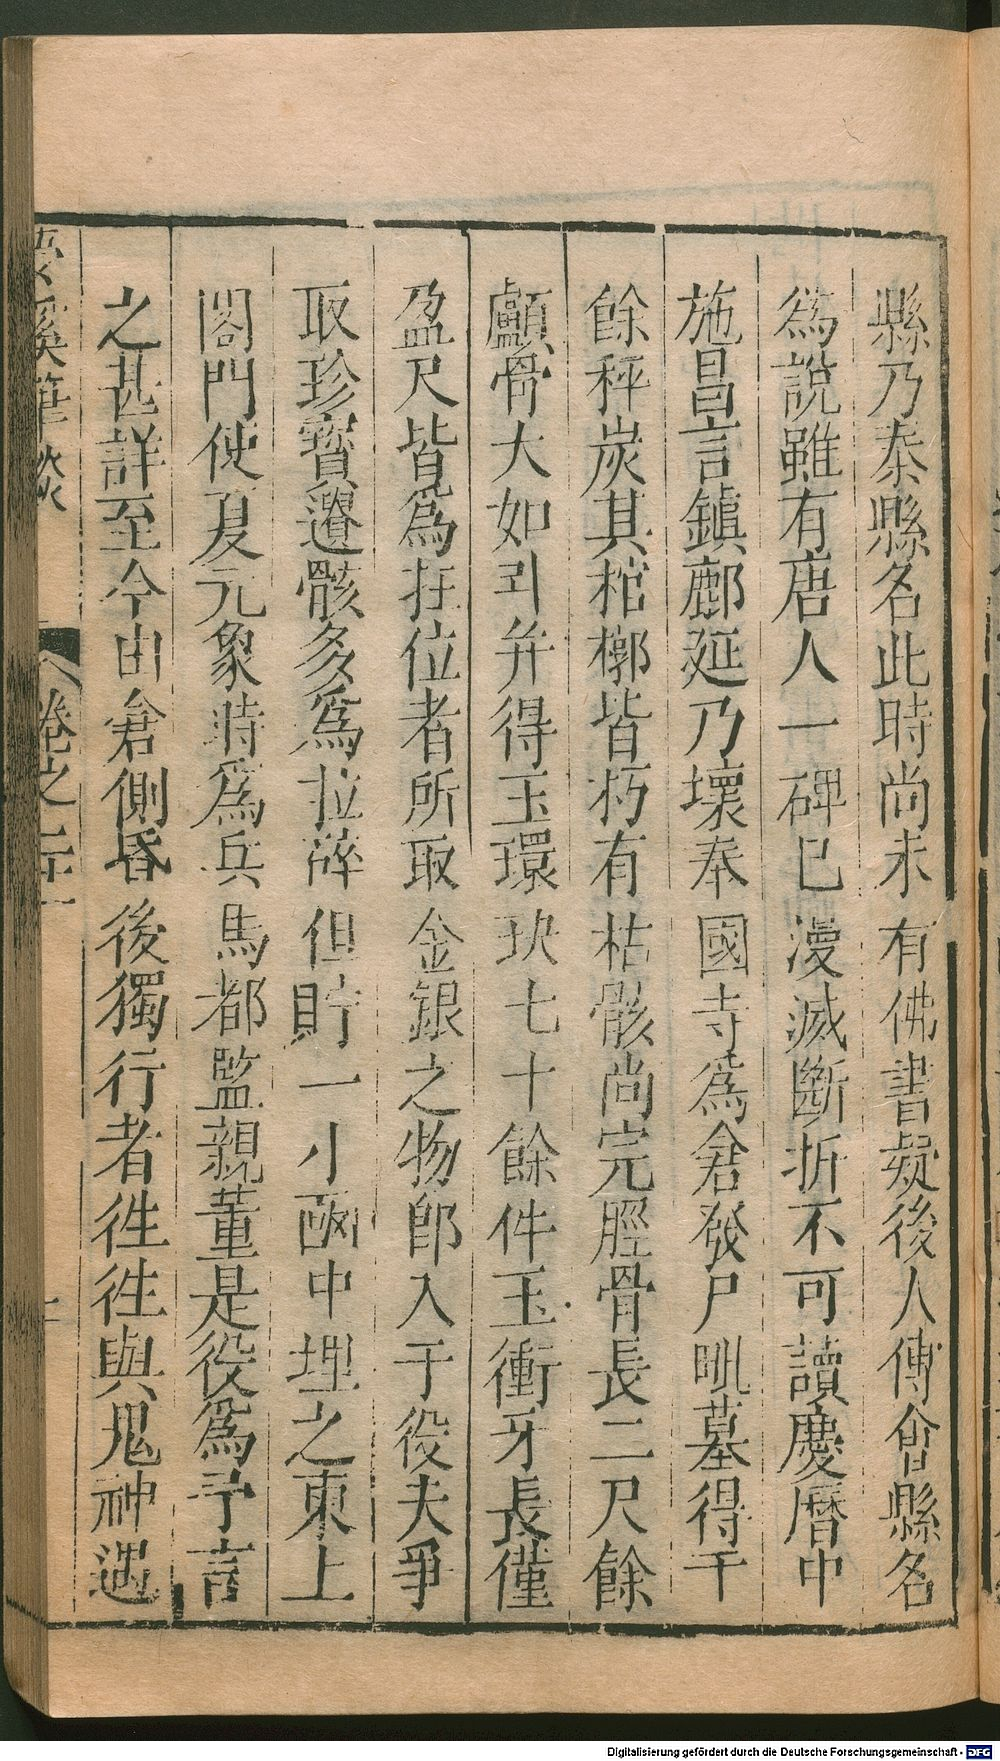 縣乃泰縣名此時尚未有佛書疑後人傅會縣名
爲說雖有唐人一碑巳漫滅斷折不可讀慶曆中
施昌言鎮鄜延乃壞奉國寺爲倉發尸毗墓得千
餘秤炭其棺槨皆朽有枯骸尚完脛骨長二尺餘
顱骨大如斗并得玉環玦七十餘件玉衝牙長僅
盈尺皆爲在位者所取金銀之物郎入于役夫爭
取珍寶遺骸多爲拉碎但貯一小函中埋之東上
閣門使夏元象時爲兵馬都監親董是役爲予言
之甚詳至今由倉側昏後獨行者徃徃與鬼神遇
溪筆談 卷之二十一
Digitalisierung gefördert durch die Deutsche Forschungsgemeinschaft - DFG